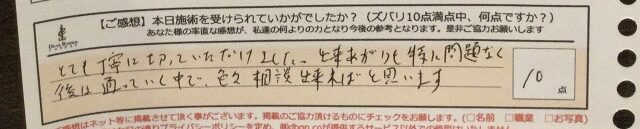 【ご感想】本日施術を受けられていかがでしたか?(ズバリ10点満点中、何点ですか?)
あなた様の率直な感想が、私達の何よりの力となり今後の参考となります。是非ご協力お願いします
とても丁寧に切っていただけました。出来あがりも特に問題なく
後は通っていく中で、色々相談出来ればと思います
10
点
ご感想はネット等に掲載させて頂く事がございます。掲載のご協力頂けるものにチェックをお願いします。(□名前 □職業 □お写真)